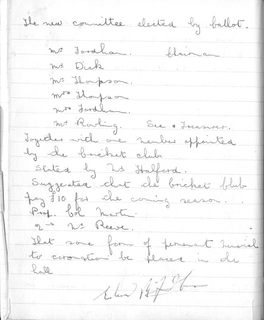 The new committee elected by ballot.
Mr Fordham. Chairman
Mr Dick
Mr Thompson.
Mrs Thompson
Mrs Fordham.
Mr Rowling. Sec & Treasurer.
Together with one member appointed
by the Cricket club
Stated by Mr Halford.
Suggested that the Cricket Club
pay £10 for the coming season.
Prop. Col
Mr Reeve.
That some form of permanent
to coronation be placed in the
hall